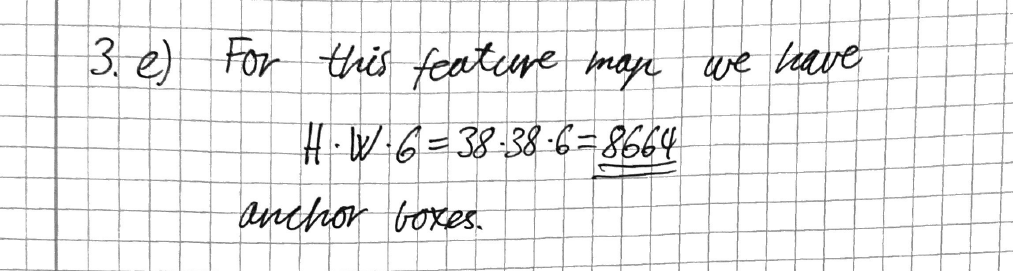 3. e) For this feature map we have
H · W · 6 = 38 · 38 · 6 = 8664
anchor boxes.